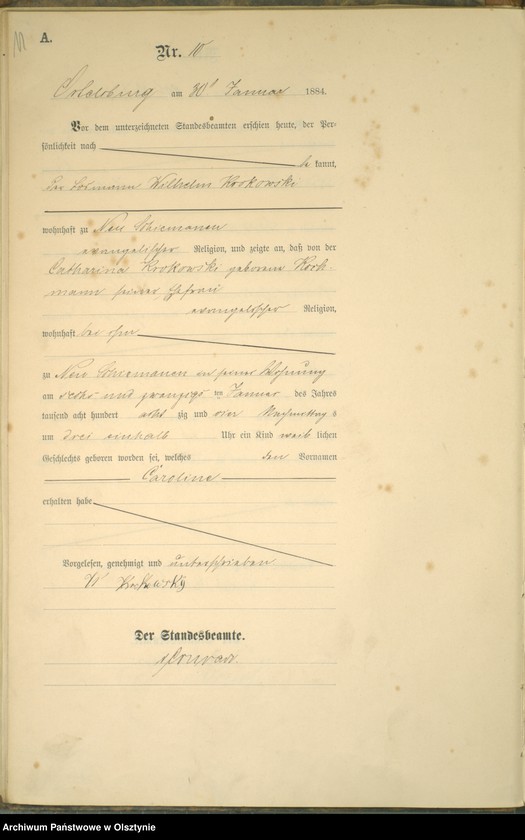 A.
Nr. 10
Ortelsburg am 30t Januar 1884.
Vor dem unterzeichneten Standesbeamten erschien heute, der Per-
sönlichkeit nach
be kannt,
der Losmann Wilhelm Krokowski
wohnhaft zu Neu Schiemanen
evangelischer Religion, und zeigte an, daß von der
Catharina Krokowski geborene Koch-
mann seiner Ehefrau
evangelischer Religion,
wohnhaft bei ihm
zu Neu Schiemanen in seiner Wohnung
am sechs und zwanzigs ten Januar des Jahres
tausend acht hundert acht zig und vier Nachmittags
um drei einhalb Uhr ein Kind weib lichen
Geschlechts geboren worden sei, welches den Vornamen
Caroline
erhalten habe
Vorgelesen, genehmigt und unterschrieben
W Krokowsky
Der Standesbeamte.
Archiwum Państwowe w Olsztynie